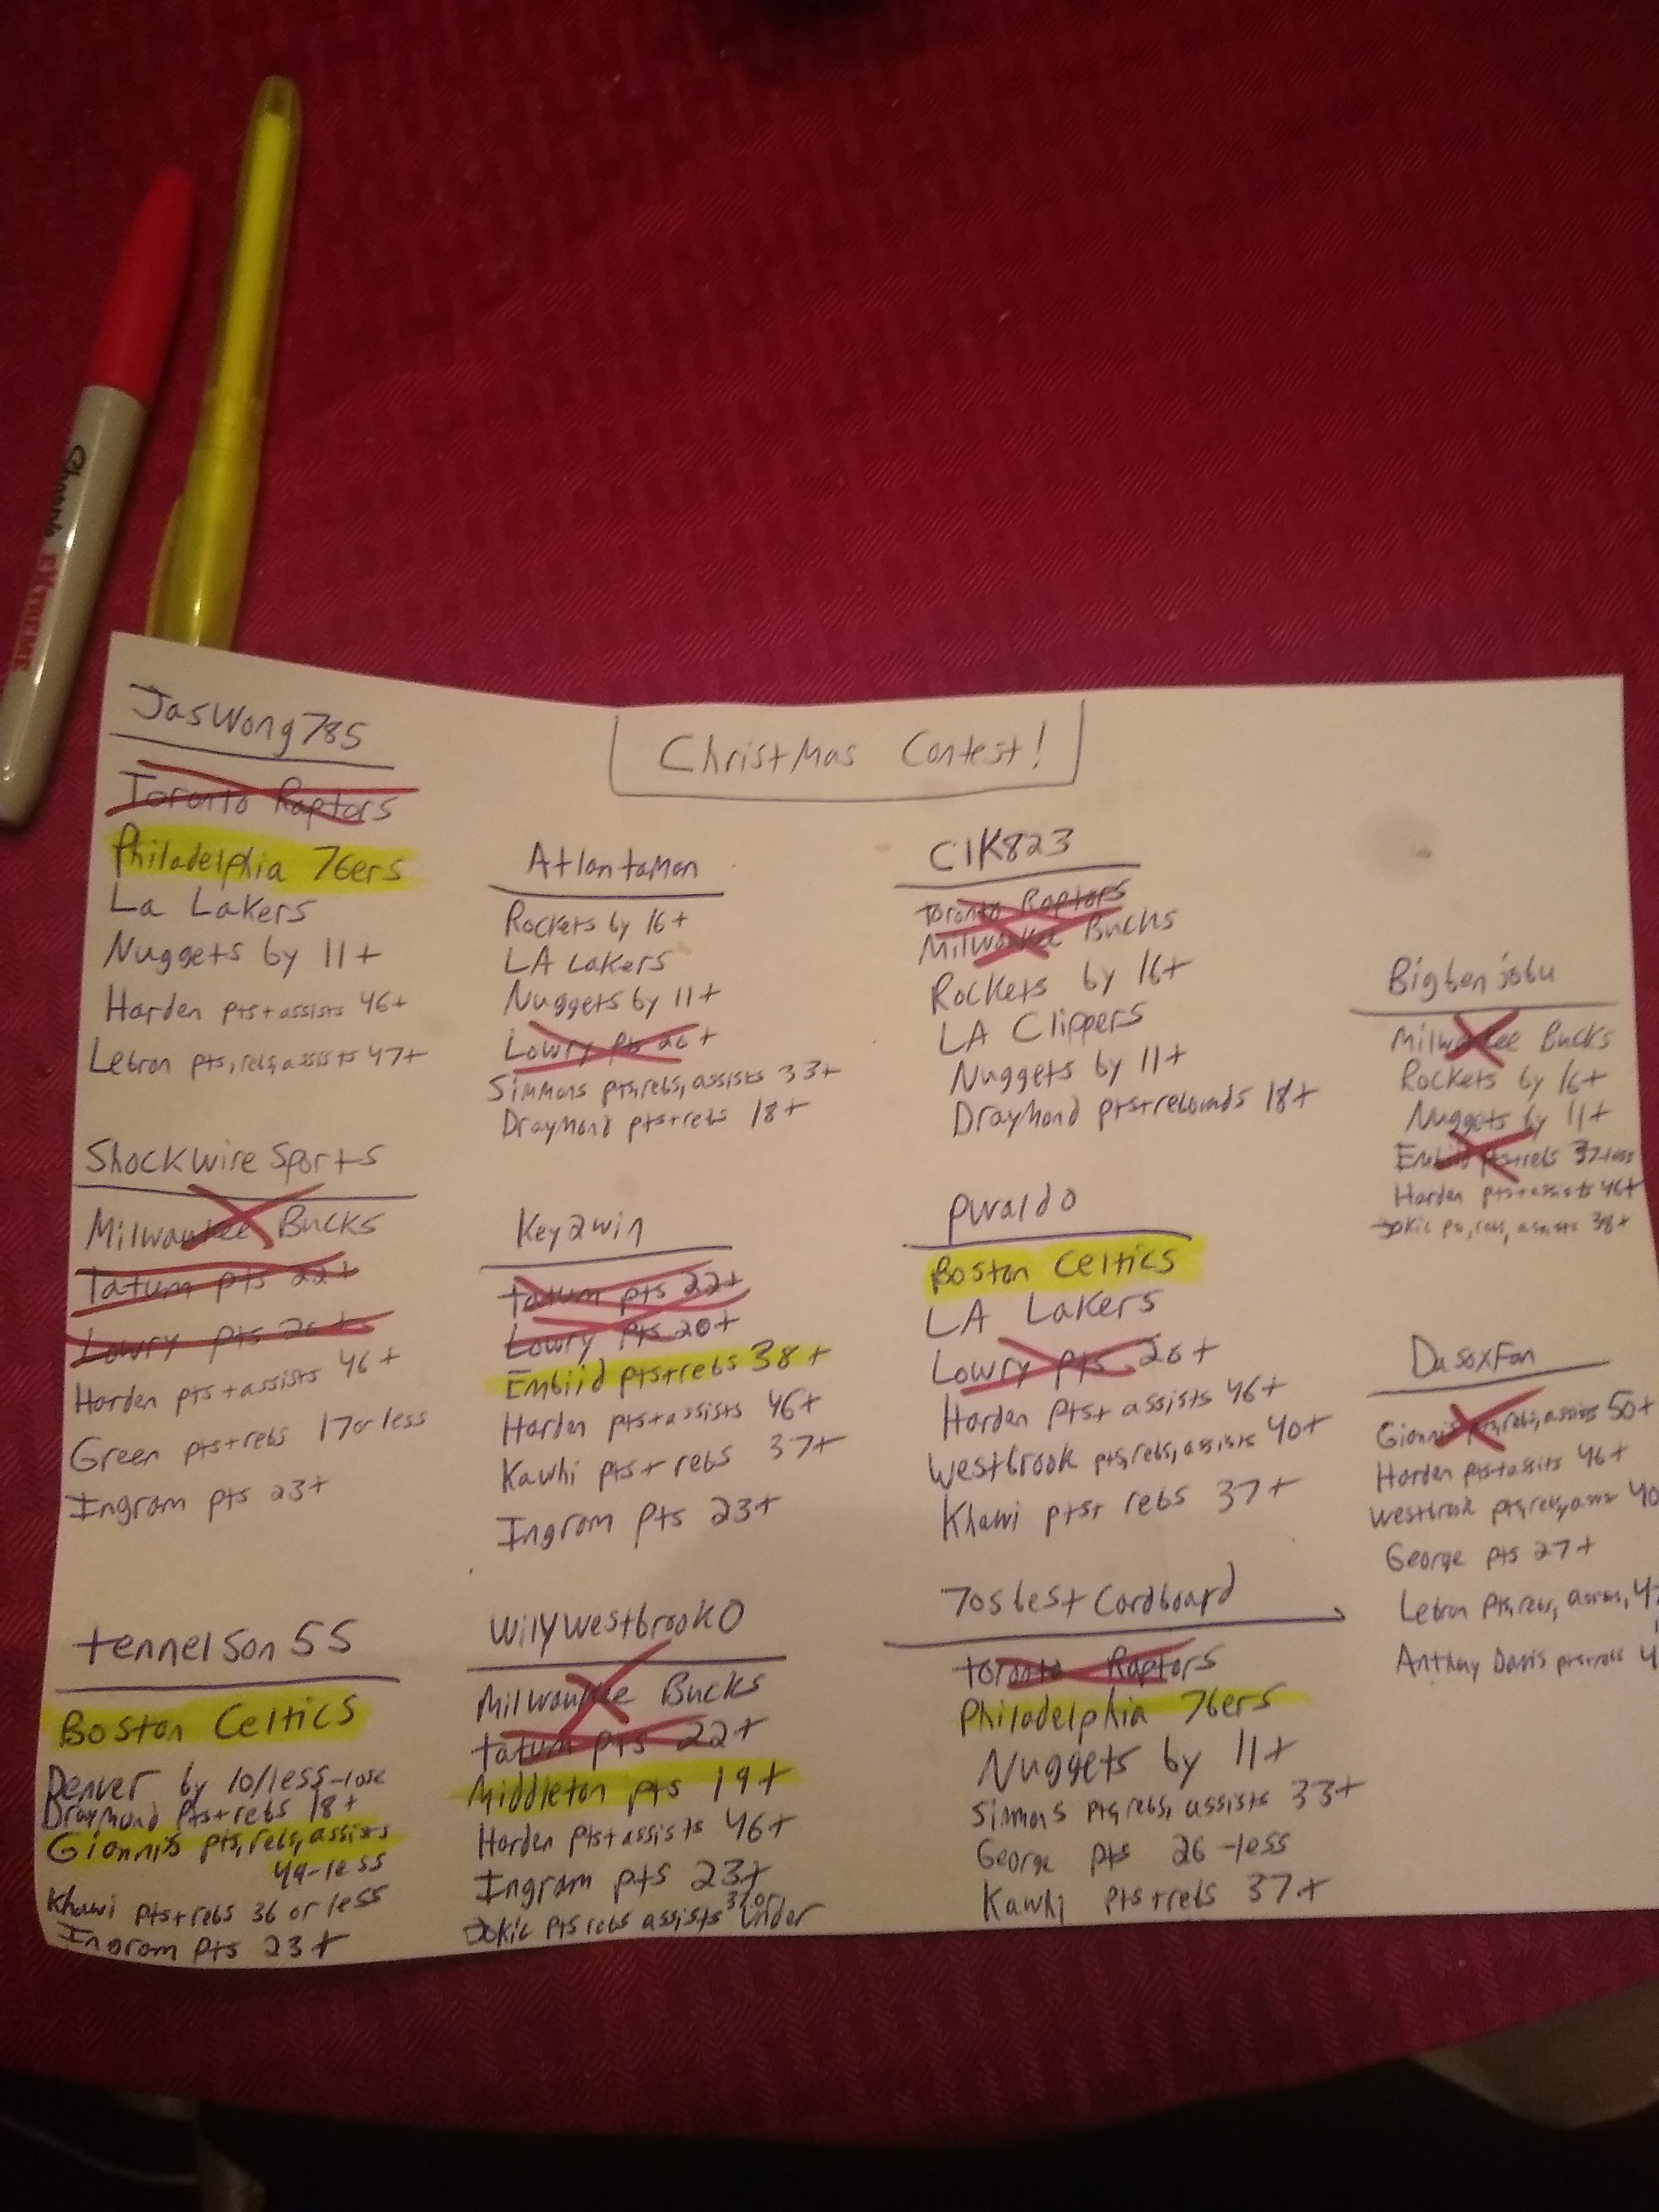 Sharpie
EXTREME
Christmas Contest!
JasWong785
Toronto Raptors
Philadelphia 76ers
La Lakers
Nuggets by 11+
Harden pts+assists 46+
Lebron pts, rebs, assists 47+
Shockwire Sports
Milwaukee Bucks
Tatum pts 22+
Lowry pts 20+
Harden pts+assists 46+
Green pts+rebs 17 or less
Ingram pts 23+
tennelson55
Boston Celtics
Denver by 10/less-lose
Draymond Pts+rebs 18+
Giannis pts, rebs, assists
49-less
Khawi pts+rebs 36 or less
Ingram pts 23+
Atlantaman
Rockets by 16+
LA Lakers
Nuggets by 11+
Lowry pts 20+
Simmons pts, rebs, assists 33+
Draymond pts+rebs 18+
Key2win
Tatum pts 22+
Lowry pts 20+
Embiid pts+rebs 38+
Harden pts+assists 46+
Kawhi pts+rebs 37+
Ingram pts 23+
WilyWestbrook0
Milwaukee Bucks
Tatum pts 22+
Middleton pts 19+
Harden pts+assists 46+
Ingram pts 23+
Jokic pts rebs assists 37 or under
C1K823
Toronto Raptors
Milwaukee Bucks
Rockets by 16+
LA Clippers
Nuggets by 11+
Draymond pts+rebounds 18+
pwaldo
Boston Celtics
LA Lakers
Lowry pts 20+
Harden pts+assists 46+
Westbrook pts, rebs, assists 40+
Khawi pts+ rebs 37+
70sbestCardboard
Toronto Raptors
Philadelphia 76ers
Nuggets by 11+
Simmons pts, rebs, assists 33+
George pts 26-less
Kawhi pts+rebs 37+
Bigbenjobu
Milwaukee Bucks
Rockets by 16+
Nuggets by 11+
Embiid pts+rebs 37-less
Harden pts+assists 46+
Jokic pts, rebs, assists 38+
Dasoxfan
Giannis pts, rebs, assists 50+
Harden pts+assits 46+
Westbrook pts, rebs, assts 40
George pts 27+
Lebron Pts, rebs, assists, 4
Anthony Davis pts+rebs 4